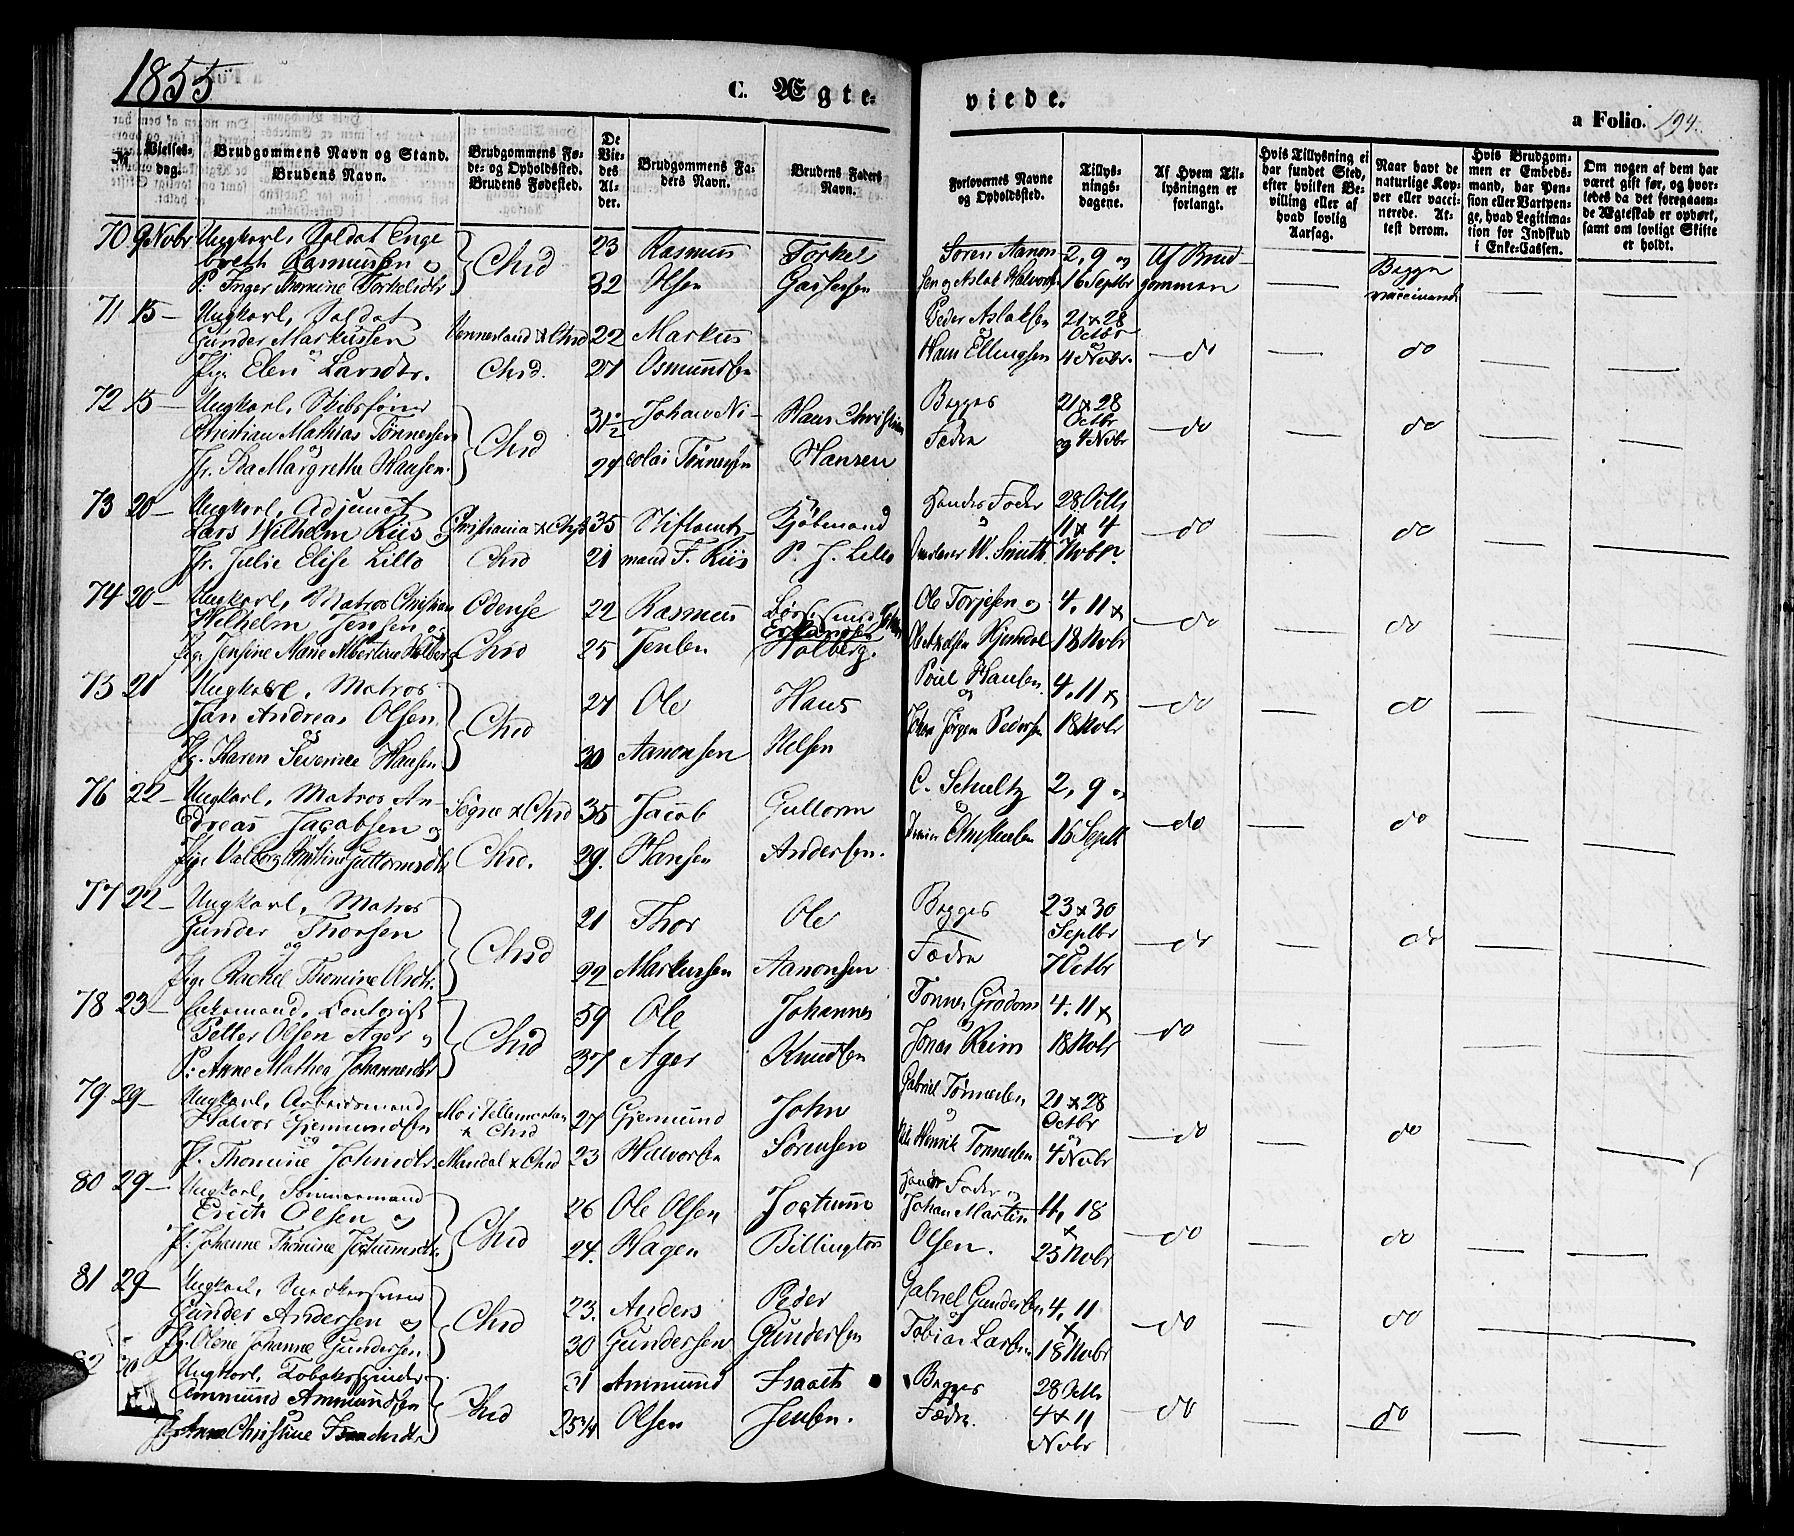 1855
C. Ægte-
viede.
a Folio. 194.
№
Vielses-
dag.
Brudgommens Navn og Stand.
Brudens Navn.
Brudgommens Fø-
de- og Opholdssted.
Brudens Fødested.
De
Vie-
des
Al-
der.
Brudgommens Fa-
ders Navn.
Brudens Faders
Navn.
Forlovernes Navne
og Opholdssted.
Tillys-
nings-
dagene.
Af Hvem Til-
lysningen er
forlangt.
Hvis Tillysning ei
har fundet Sted,
efter hvilken Be-
villing eller af
hvad lovlig
Aarsag.
Naar havt de
naturlige Kop-
per eller vacci-
nerede. At-
test derom.
Hvis Brudgom-
men er Embeds-
mand, har Pen-
sion eller Vartpen-
ge, hvad Legitima-
tion for Indskud
i Enke-Cassen.
Om nogen af dem har
været gift før, og hvor-
ledes da det foregaaen-
de Ægteskab er ophørt,
samt om lovligt Skifte
er holdt.
70 9 Novbr Ungkarl, Soldat Enge 23 Rasmus Torkel Søren Aanon 2, 9 og Af Brud-
breth Rasmussen og Chsd
P: Inger Thomine Torkelsdtr 32 Olsen sen og Aslak Halvorsen 16 Septbr gommen — Begge vaccinerede — —
71 15 — Ungkarl, Soldat Peder Aslaksen 21 & 28
Gunder Markussen Vennesland & Chsd 22 Markus og Octbr
og Hans Ellingsen 4 Novbr. — do — do — —
Pige Elen Larsdtr. Chsd. 27 Osmundsen
72 15 — Ungkarl, Skibsfører 31½ Johan Ni- Hans Christian Begges 21 & 28
Christian Mathias Tønnesen Chsd Octbr
og Fædre og 4 Novbr — do — do — —
Jfr. Ida Margrethe Hansen. 24 colai Tønnesen Hansen
73 20 — Ungkarl, Adjunct Hendes Fader 28 Octb
Lars Wilhelm Riis og Christiania & Chsd 35 Stiftamt- Kjøbmand og 11 & 4
Jfr. Julie Elise Lillo Chsd 21 mand F. Riis P. J. Lillo W. Smith Novbr. — do — do — —
74 20 — Ungkarl, Matros Christian Odense 22 Rasmus Ole Torjesen og 4, 11 &
Wilhelm Jensen og
Pige Jensine Marie Albertine Holberg Chsd 25 Jensen Holberg. 18 Novbr — do — do — —
75 21 Ungkarl, Matros 27 Ole Hans Poul Hansen 4, 11 &
Jan Andreas Olsen Chsd og
og Jørgen Pedersen 18 Novbr — do — do — —
Pg. Karen Severine Hansen 30 Aanonsen Nilsen
76 22 — Ungkarl, Matros An- Søgne & Chsd 35 Jacob Guttorm C. Schultz 2, 9 og
dreas Jacobsen og og Christensen 16 Septb — do — do — —
Pige Valborg Guttormsdtr Chsd. 29. Hansen Andersen.
77 22 — Ungkarl, Matros 21 Thor Ole Begges 23 & 30
Gunder Thorsen Chsd Septbr
og Fædre 7 Octbr — do — do — —
Pige Rachel Thomine Olsdtr. 22 Markussen Aanonsen
78 23 — Enkemand, Contorist 59 Ole Johannes Tønnes Grødem 4. 11 &
Petter Olsen Ager og Chsd og
P: Anne Mathea Johannesdtr 37 Ager Knudsen Jonas Reim 18 Novbr — do — do — —
79. 29 — Ungkarl, Arbeidsmand Gabriel Tønnesen 21 & 28
Halvor Gjemundsen Mo i Tellemarken & Chsd 27 Gjemund John og Octbr
og Henrik Tønnesen og — do — do — —
P. Thomine Johnsdtr Mandal & Chsd 23 Halvorsen Sørensen 4 Novbr
80 29 — Ungkarl, Tømmermand 26 Ole Olsen Jochum Hendes Fader og 11, 18
Erich Olsen og Chsd Johan Martin &
P: Johanne Thomine Jochumsdtr. 24. Hagen Billington Olsen. 25 Novbr — do — do — —
81 29 — Ungkarl, Snedkersvend 23. Anders Peder Gabriel Gundersen 4, 11
Gunder Andersen og Chsd og &
Pg. Olene Johanne Gundersen 30 Gundersen Gundersen Tobias Larsen 18 Novbr — do — do — —
82 Ungkarl, Tobaksspinder 31 Ammund Isaach Begges 28 Octb
Ammund Ammundsen Chsd 4 & 11
Anne Christine Isachsdtr 25¾ Olsen Jensen. Fædre. Novbr — do — do — —